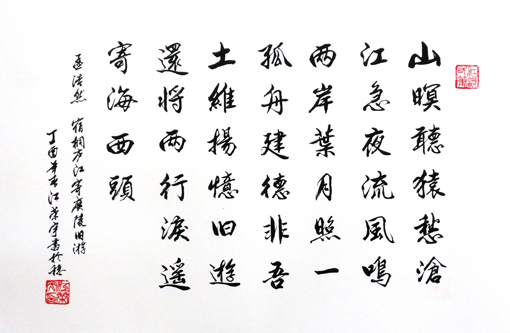 山暝聽猿愁滄
江急夜流風鳴
兩岸葉月照一
孤舟建德非吾
土維揚憶旧遊
還將兩行淚遥
寄海西頭
孟浩然 宿桐庐江寄廣陵旧游
丁酉年春江荣宇書於穗